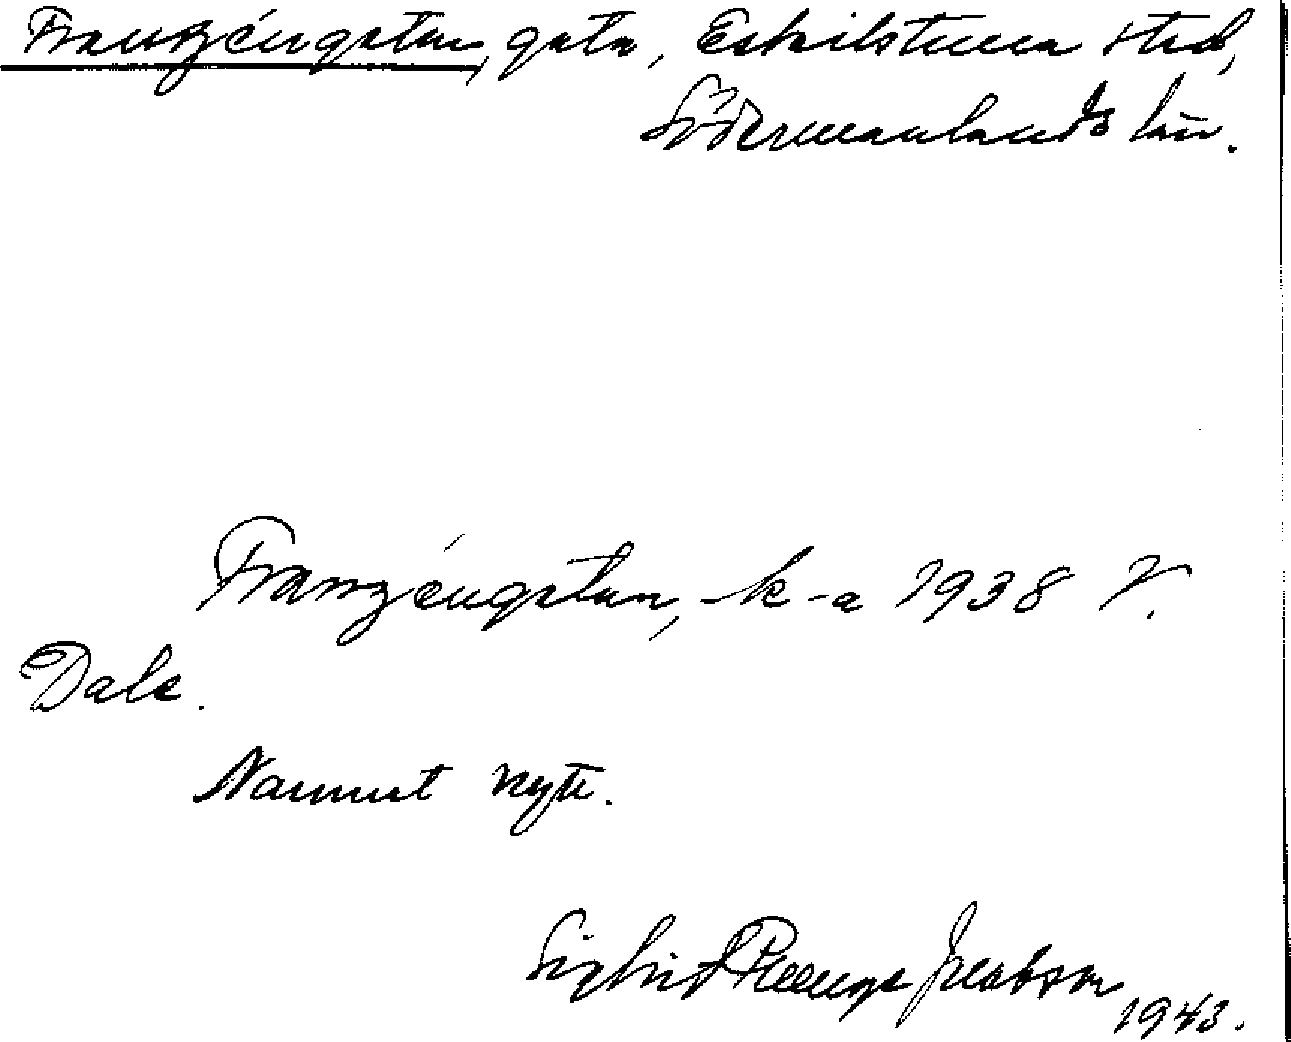 Franzéngatan, gata, Eskilstuna stad,
Södermanlands län.
Franzéngatan, -k -a 1938 V.
Dale.
Namnet nytt.
Sigfrid Jacobson
1943.